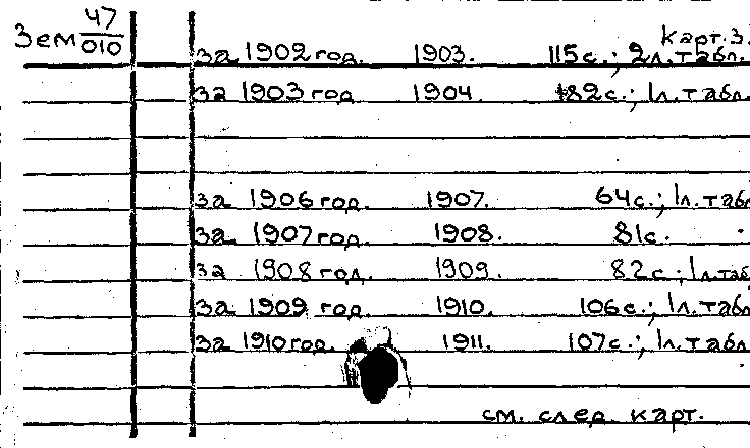 Зем 47/010
Карт. 3.
за 1902 год. 1903. 115с.; 2л. табл.
за 1903 год 1904. 182с.; 1л. табл.
за 1906 год. 1907. 64с.; 1л. табл
за 1907 год. 1908. 81с.
за 1908 год. 1909. 82с.; 1л. таб
за 1909 год. 1910. 106с.; 1л. табл
за 1910 год. 1911. 107с.; 1л. табл.
см. след. карт.